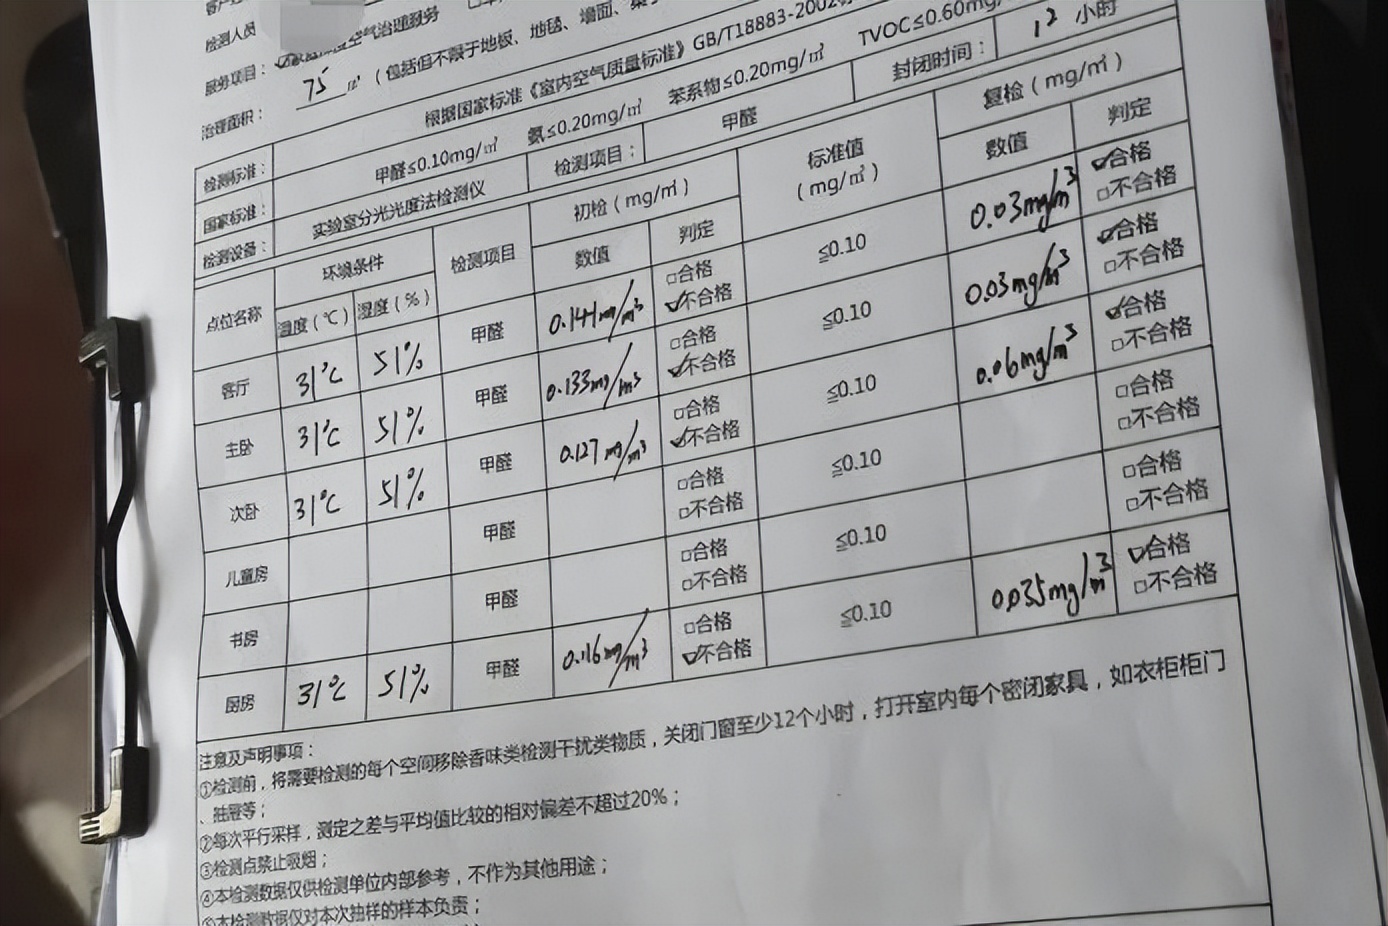 检测人员
服务项目： 空气治理服务
治理面积： 75 ㎡（包括但不限于地板、地毯、墙面、
检测标准： 根据国家标准《室内空气质量标准》GB/T18883-2002
国家标准： 甲醛≤0.10mg/㎥ 氨≤0.20mg/㎥ 苯系物≤0.20mg/㎥ TVOC≤0.60mg/
检测设备： 实验室分光光度法检测仪 检测项目： 甲醛 封闭时间： 12 小时
点位名称 环境条件 检测项目 初检（mg/㎥） 标准值（mg/㎥） 复检（mg/㎥）
温度（℃） 湿度（%） 数值 判定 数值 判定
客厅 31℃ 51% 甲醛 0.141mg/m³ □合格 ☑不合格 ≦0.10 0.03mg/m³ ☑合格 □不合格
主卧 31℃ 51% 甲醛 0.133mg/m³ □合格 ☑不合格 ≦0.10 0.03mg/m³ ☑合格 □不合格
次卧 31℃ 51% 甲醛 0.127mg/m³ □合格 ☑不合格 ≦0.10 0.06mg/m³ ☑合格 □不合格
儿童房 甲醛 □合格 □不合格 ≦0.10 □合格 □不合格
书房 甲醛 □合格 □不合格 ≦0.10 □合格 □不合格
厨房 31℃ 51% 甲醛 0.116mg/m³ □合格 ☑不合格 ≦0.10 0.035mg/m³ ☑合格 □不合格
注意及声明事项：
①检测前，将需要检测的每个空间移除香味类检测干扰类物质，关闭门窗至少12个小时，打开室内每个密闭家具，如衣柜柜门
、抽屉等；
②每次平行采样，测定之差与平均值比较的相对偏差不超过20%；
③检测点禁止吸烟；
④本检测数据仅供检测单位内部参考，不作为其他用途；
⑤本检测数据仅对本次抽样的样本负责；